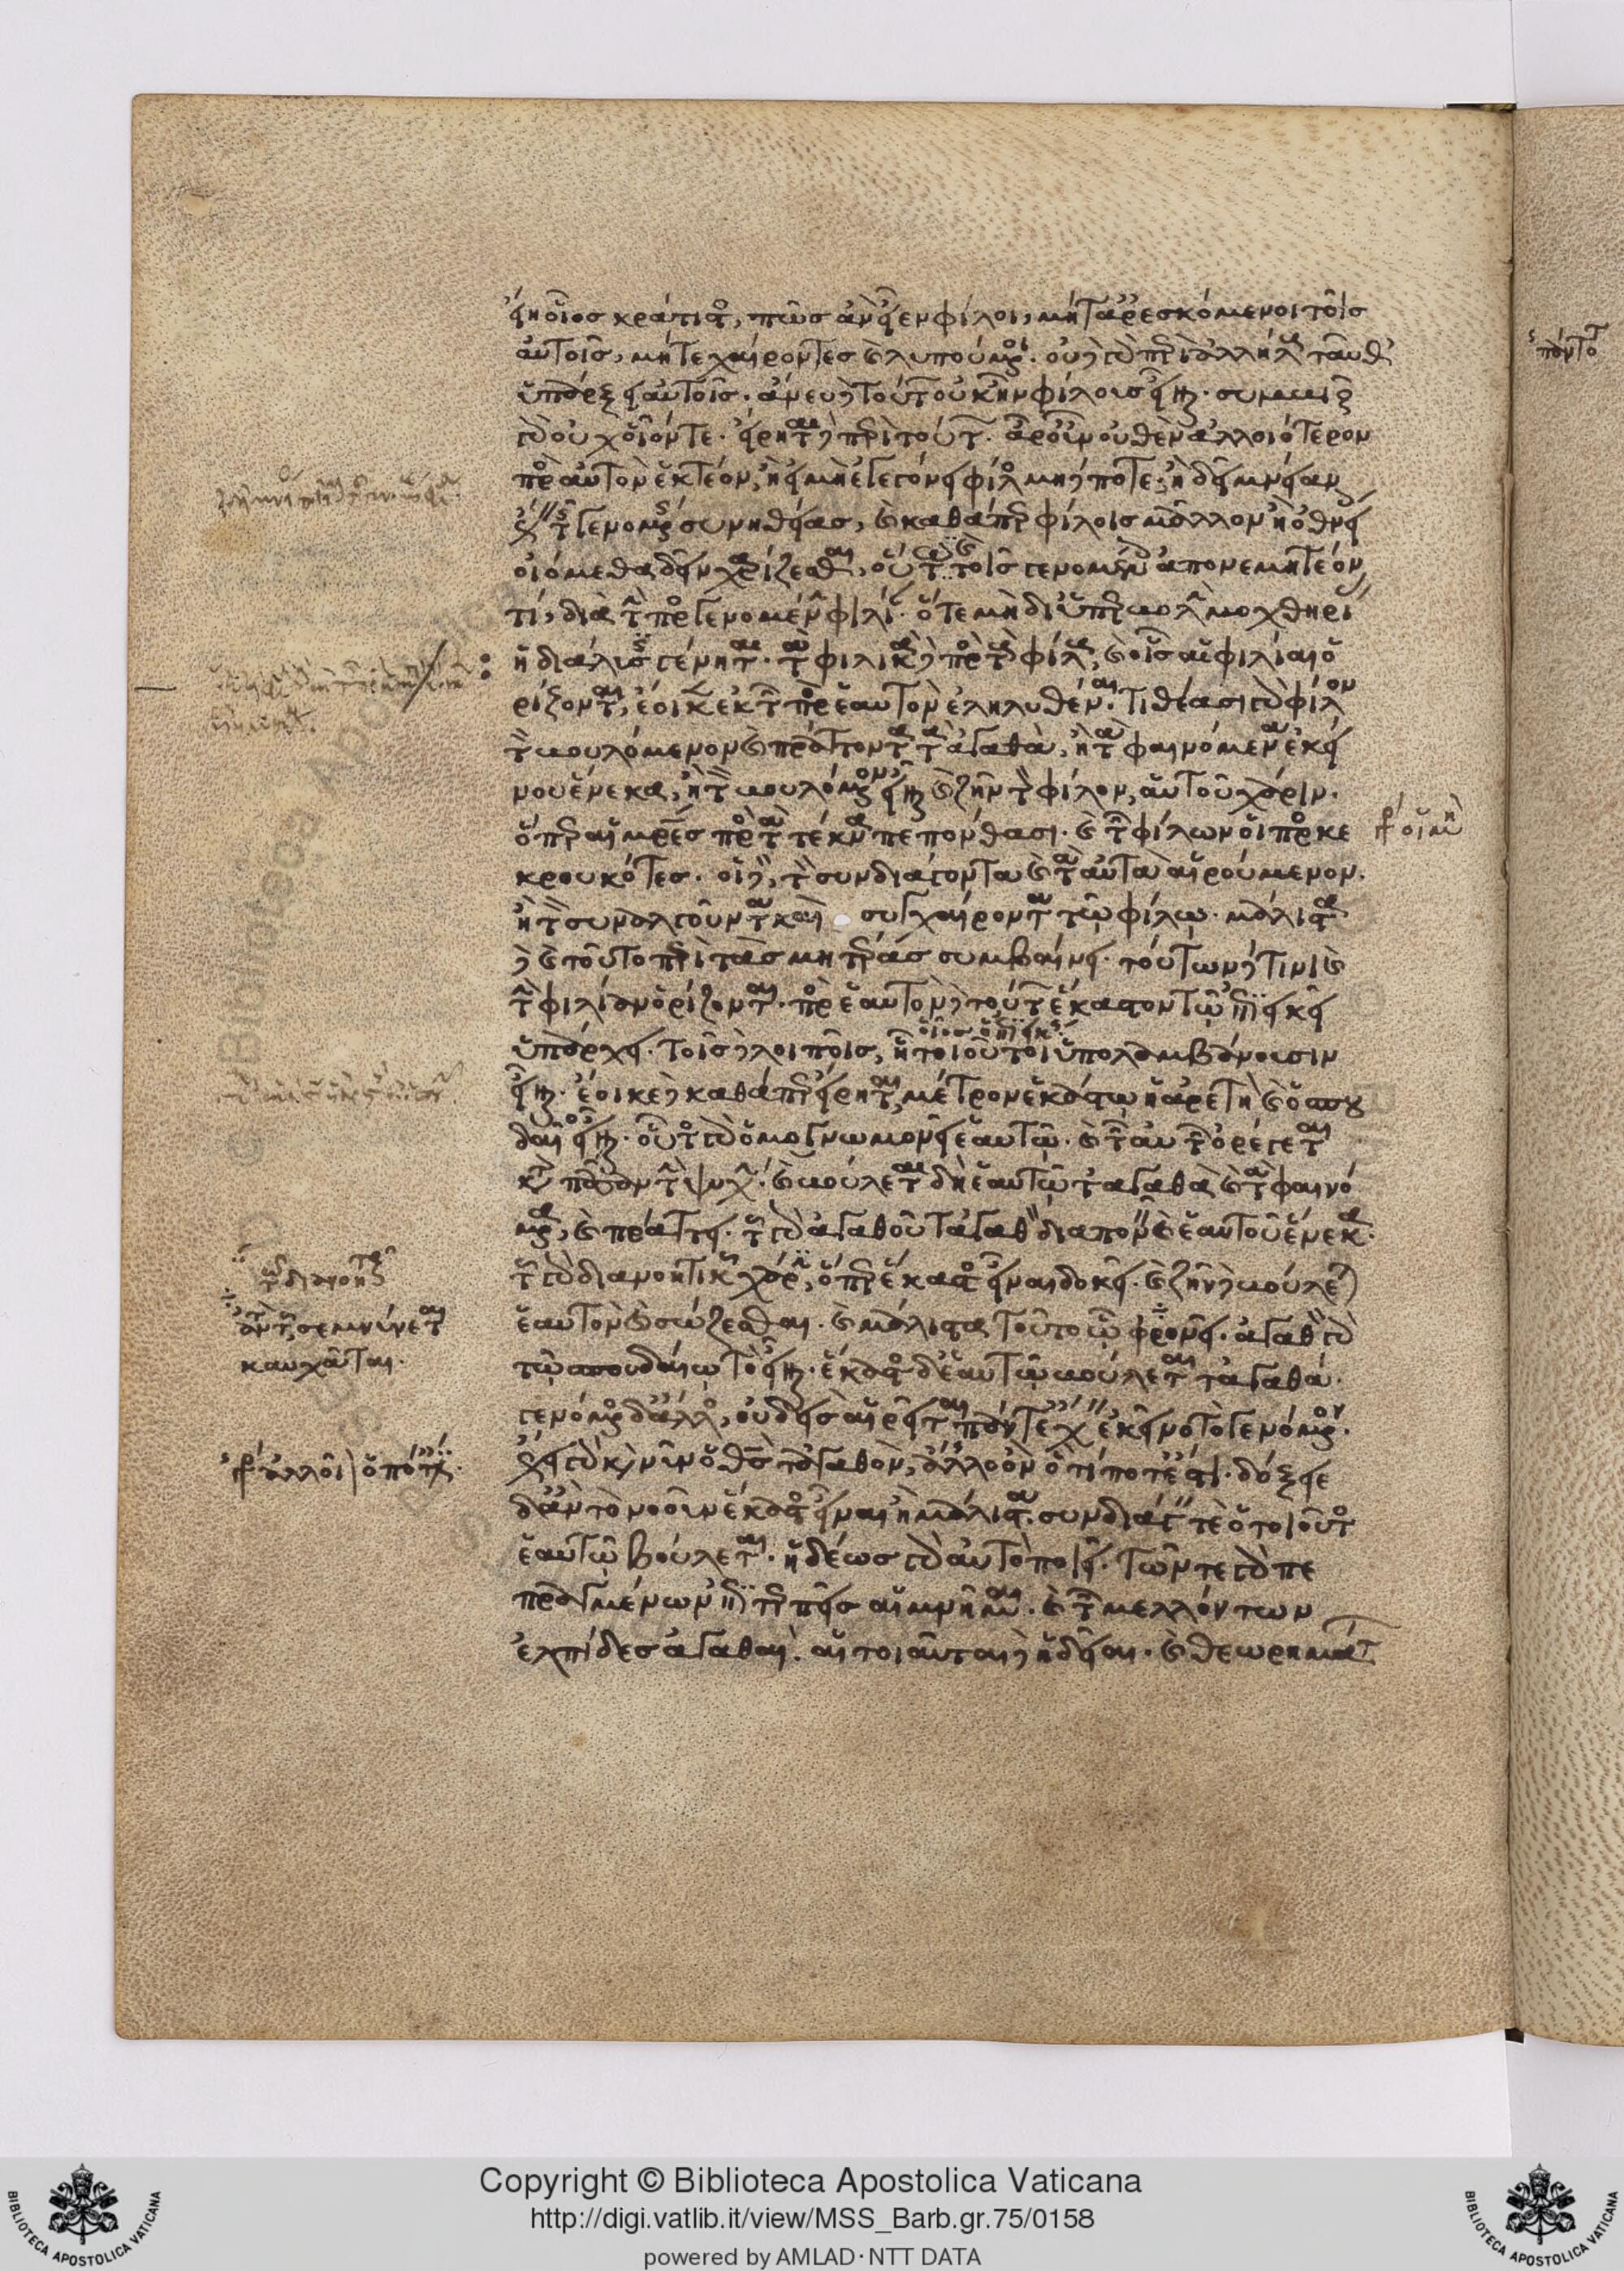 εἴη οἷος κράτιστος, πῶς ἂν εἶεν φίλοι, μήτ' ἀρεσκόμενοι τοῖς
αὐτοῖς, μήτε χαίροντες καὶ λυπούμενοι. οὐδὲ γὰρ περὶ ἀλλήλους ταῦθ'
ὑπάρξει αὐτοῖς. ἄνευ δὲ τούτου οὐκ ἦν φίλους εἶναι. συμβιοῦν
γὰρ οὐχ οἷόν τε. εἴρηται δὲ περὶ τούτων. ἆρ' οὖν οὐθὲν ἀλλοιότερον
πρὸς αὐτὸν ἑκτέον, ἢ εἰ μὴ ἐγεγόνει φίλος μηδέποτε· ἢ δεῖ μνείαν
ἔχειν τῆς γενομένης συνηθείας, καὶ καθάπερ φίλοις μᾶλλον ἢ ὀθνείοις
οἰόμεθα δεῖν χαρίζεσθαι, οὕτω καὶ τοῖς γενομένοις ἀπονεμητέον
τι, διὰ τὴν προγενομένην φιλίαν. ὅτε μὴ δι' ὑπερβολὴν μοχθηρίας
ἡ διάλυσις γένηται. τὰ φιλικὰ δὲ πρὸς τοὺς φίλους, καὶ οἷς αἱ φιλίαι ὁ
ρίζονται, ἔοικεν ἐκ τῶν πρὸς ἑαυτὸν ἐληλυθέναι. τιθέασι γὰρ φίλον
τὸν βουλόμενον καὶ πράττοντα τἀγαθὰ, ἢ τὰ φαινόμενα ἐκεί
νου ἕνεκα, ἢ τὸν βουλόμενον εἶναι καὶ ζῆν τὸν φίλον, αὐτοῦ χάριν.
ὅπερ αἱ μητέρες πρὸς τὰ τέκνα πεπόνθασι. καὶ τῶν φίλων οἱ προσκε
κρουκότες. οἱ δὲ, τὸν συνδιάγοντα καὶ τὰ αὐτὰ αἱρούμενον.
ἢ τὸν συναλγοῦντα καὶ συγχαίροντα τῷ φίλῳ. μάλιστα
δὲ καὶ τοῦτο περὶ τὰς μητέρας συμβαίνει. τούτων δέ τινι καὶ
τὴν φιλίαν ὁρίζονται. πρὸς ἑαυτὸν δὲ τούτων ἕκαστον τῷ ἐπιεικεῖ
ὑπάρχει. τοῖς δὲ λοιποῖς, ᾗ τοιοῦτοι ὑπολαμβάνουσιν
εἶναι. ἔοικε δὲ καθάπερ εἴρηται, μέτρον ἑκάστῳ ἡ ἀρετὴ καὶ ὁ σπου
δαῖος εἶναι. οὗτος γὰρ ὁμογνωμονεῖ ἑαυτῷ. καὶ τῶν αὐτῶν ὀρέγεται
κατὰ πᾶσαν τὴν ψυχήν. καὶ βούλεται δὴ ἑαυτῷ τἀγαθὰ καὶ τὰ φαινό
μενα, καὶ πράττει. τοῦ γὰρ ἀγαθοῦ τἀγαθὸν διαπονεῖν καὶ ἑαυτοῦ ἕνεκα.
τοῦ γὰρ διανοητικοῦ χάριν, ὅπερ ἕκαστος εἶναι δοκεῖ. καὶ ζῆν δὲ βούλεται
ἑαυτὸν καὶ σώζεσθαι. καὶ μάλιστα τοῦτο ᾧ φρονεῖ. ἀγαθὸν γὰρ
τῷ σπουδαίῳ τὸ εἶναι. ἕκαστος δ' ἑαυτῷ βούλεται τἀγαθά.
γενόμενος δ' ἄλλος, οὐδεὶς αἱρεῖται πάντ' ἔχειν ἐκεῖνο τὸ γενόμενον.
ἔχει γὰρ καὶ νῦν ὁ θεὸς τἀγαθὸν, ἀλλ' ὢν ὅ τι ποτ' ἐστί. δόξειε
δ' ἂν τὸ νοοῦν ἕκαστος εἶναι ἢ μάλιστα. συνδιάγειν τε ὁ τοιοῦτος
ἑαυτῷ βούλεται. ἡδέως γὰρ αὐτὸ ποιεῖ. τῶν τε γὰρ πε
πραγμένων ἐπιτερπεῖς αἱ μνῆμαι. καὶ τῶν μελλόντων
ἐλπίδες ἀγαθαί. αἱ τοιαῦται δὲ ἡδεῖαι. καὶ θεωρημάτων
Copyright © Biblioteca Apostolica Vaticana
http://digi.vatlib.it/view/MSS_Barb.gr.75/0158
powered by AMLAD·NTT DATA
BIBLIOTECA APOSTOLICA VATICANA
BIBLIOTECA APOSTOLICA VATICANA